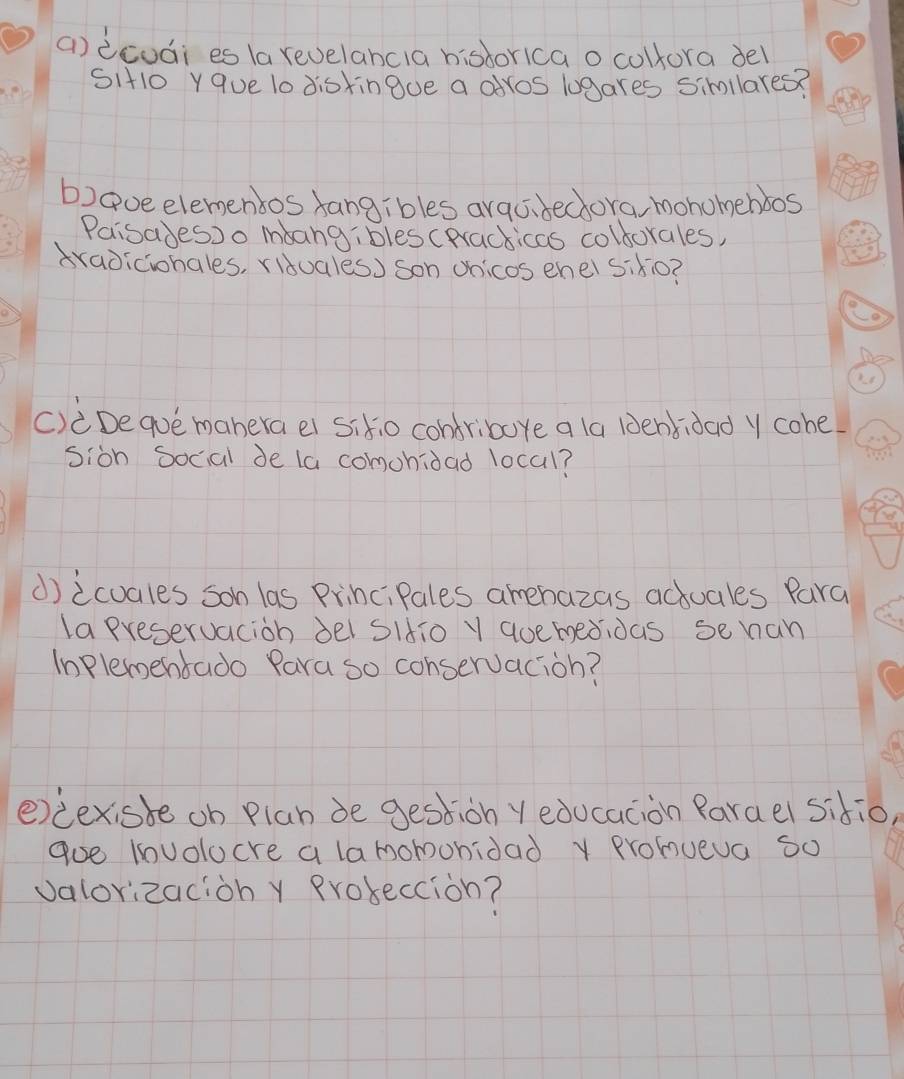 a) ¿cuái es la revelancia historica o coltora del
sitio y que lo distingue a otros lugares similares?
b) que elementos tangibles arquitectora, monumentos
Paisajes) o intangibles (practicas coltorales,
tradicionales, rituales) son unicos en el sitio?
c) ¿De qué manera el sitio contriboye a la identidad y cohe-
sión social de la comonidad local?
d) ¿cuales son las principales amenazas actuales Para
la Preservación del sitio y que medidas se han
inplementado Para so conservación?
e) ¿existe on Plan de gestión y educación Para el sitio,
que involocre a la momonidad y Promueva so
valorización y Protección?